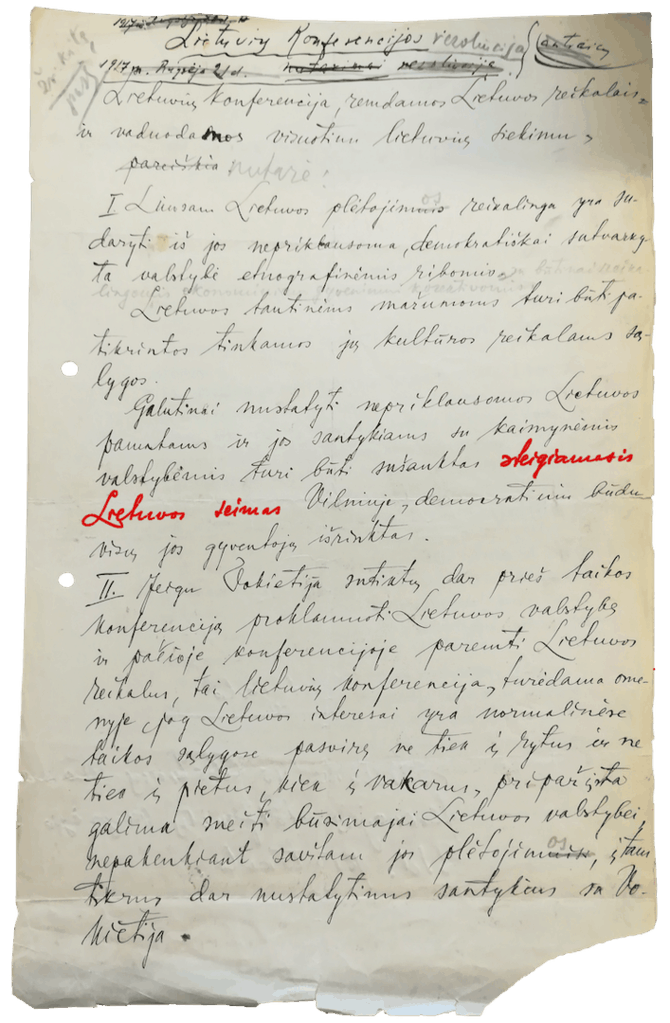 Lietuvių Konferencijos rezoliucija
1917 m. Rugsėjo 21 d. rezoliucija
Lietuvių Konferencija, remdamos Lietuvos reikalais
ir vaduodamos visuotinu lietuvių siekimu,
pareiškia nutarė:
I Liuosam Lietuvos plėtojimuisos reikalinga yra su-
daryti iš jos nepriklausoma, demokratiškai sutvarky-
ta valstybė etnografinėmis ribomis
Lietuvos tautinėms mažumoms turi būti pa-
tikrintos tinkamos jų kultūros reikalams są-
lygos.
Galutinai nustatyti nepriklausomos Lietuvos
pamatams ir jos santykiams su kaimynėmis
valstybėmis turi būti sušauktas steigiamasis
Lietuvos seimas Vilniuje, demokratiniu būdu
visų jos gyventojų išrinktas.
II. Jeigu Vokietija sutiktų dar prieš taikos
konferenciją proklamuoti Lietuvos valstybę
ir pačioje konferencijoje paremti Lietuvos
reikalus, tai lietuvių konferencija, turėdama ome-
nyje, jog Lietuvos interesai yra normalinėse
taikos sąlygose pasvirę ne tiek į rytus ir ne
tiek į pietus, kiek į vakarus, pripažįsta
galima sueiti būsimajai Lietuvos valstybei,
nepakenkiant savitam jos plėtojimuisos, į tam
tikrus dar nustatytinus santykius su Vo-
kietija.